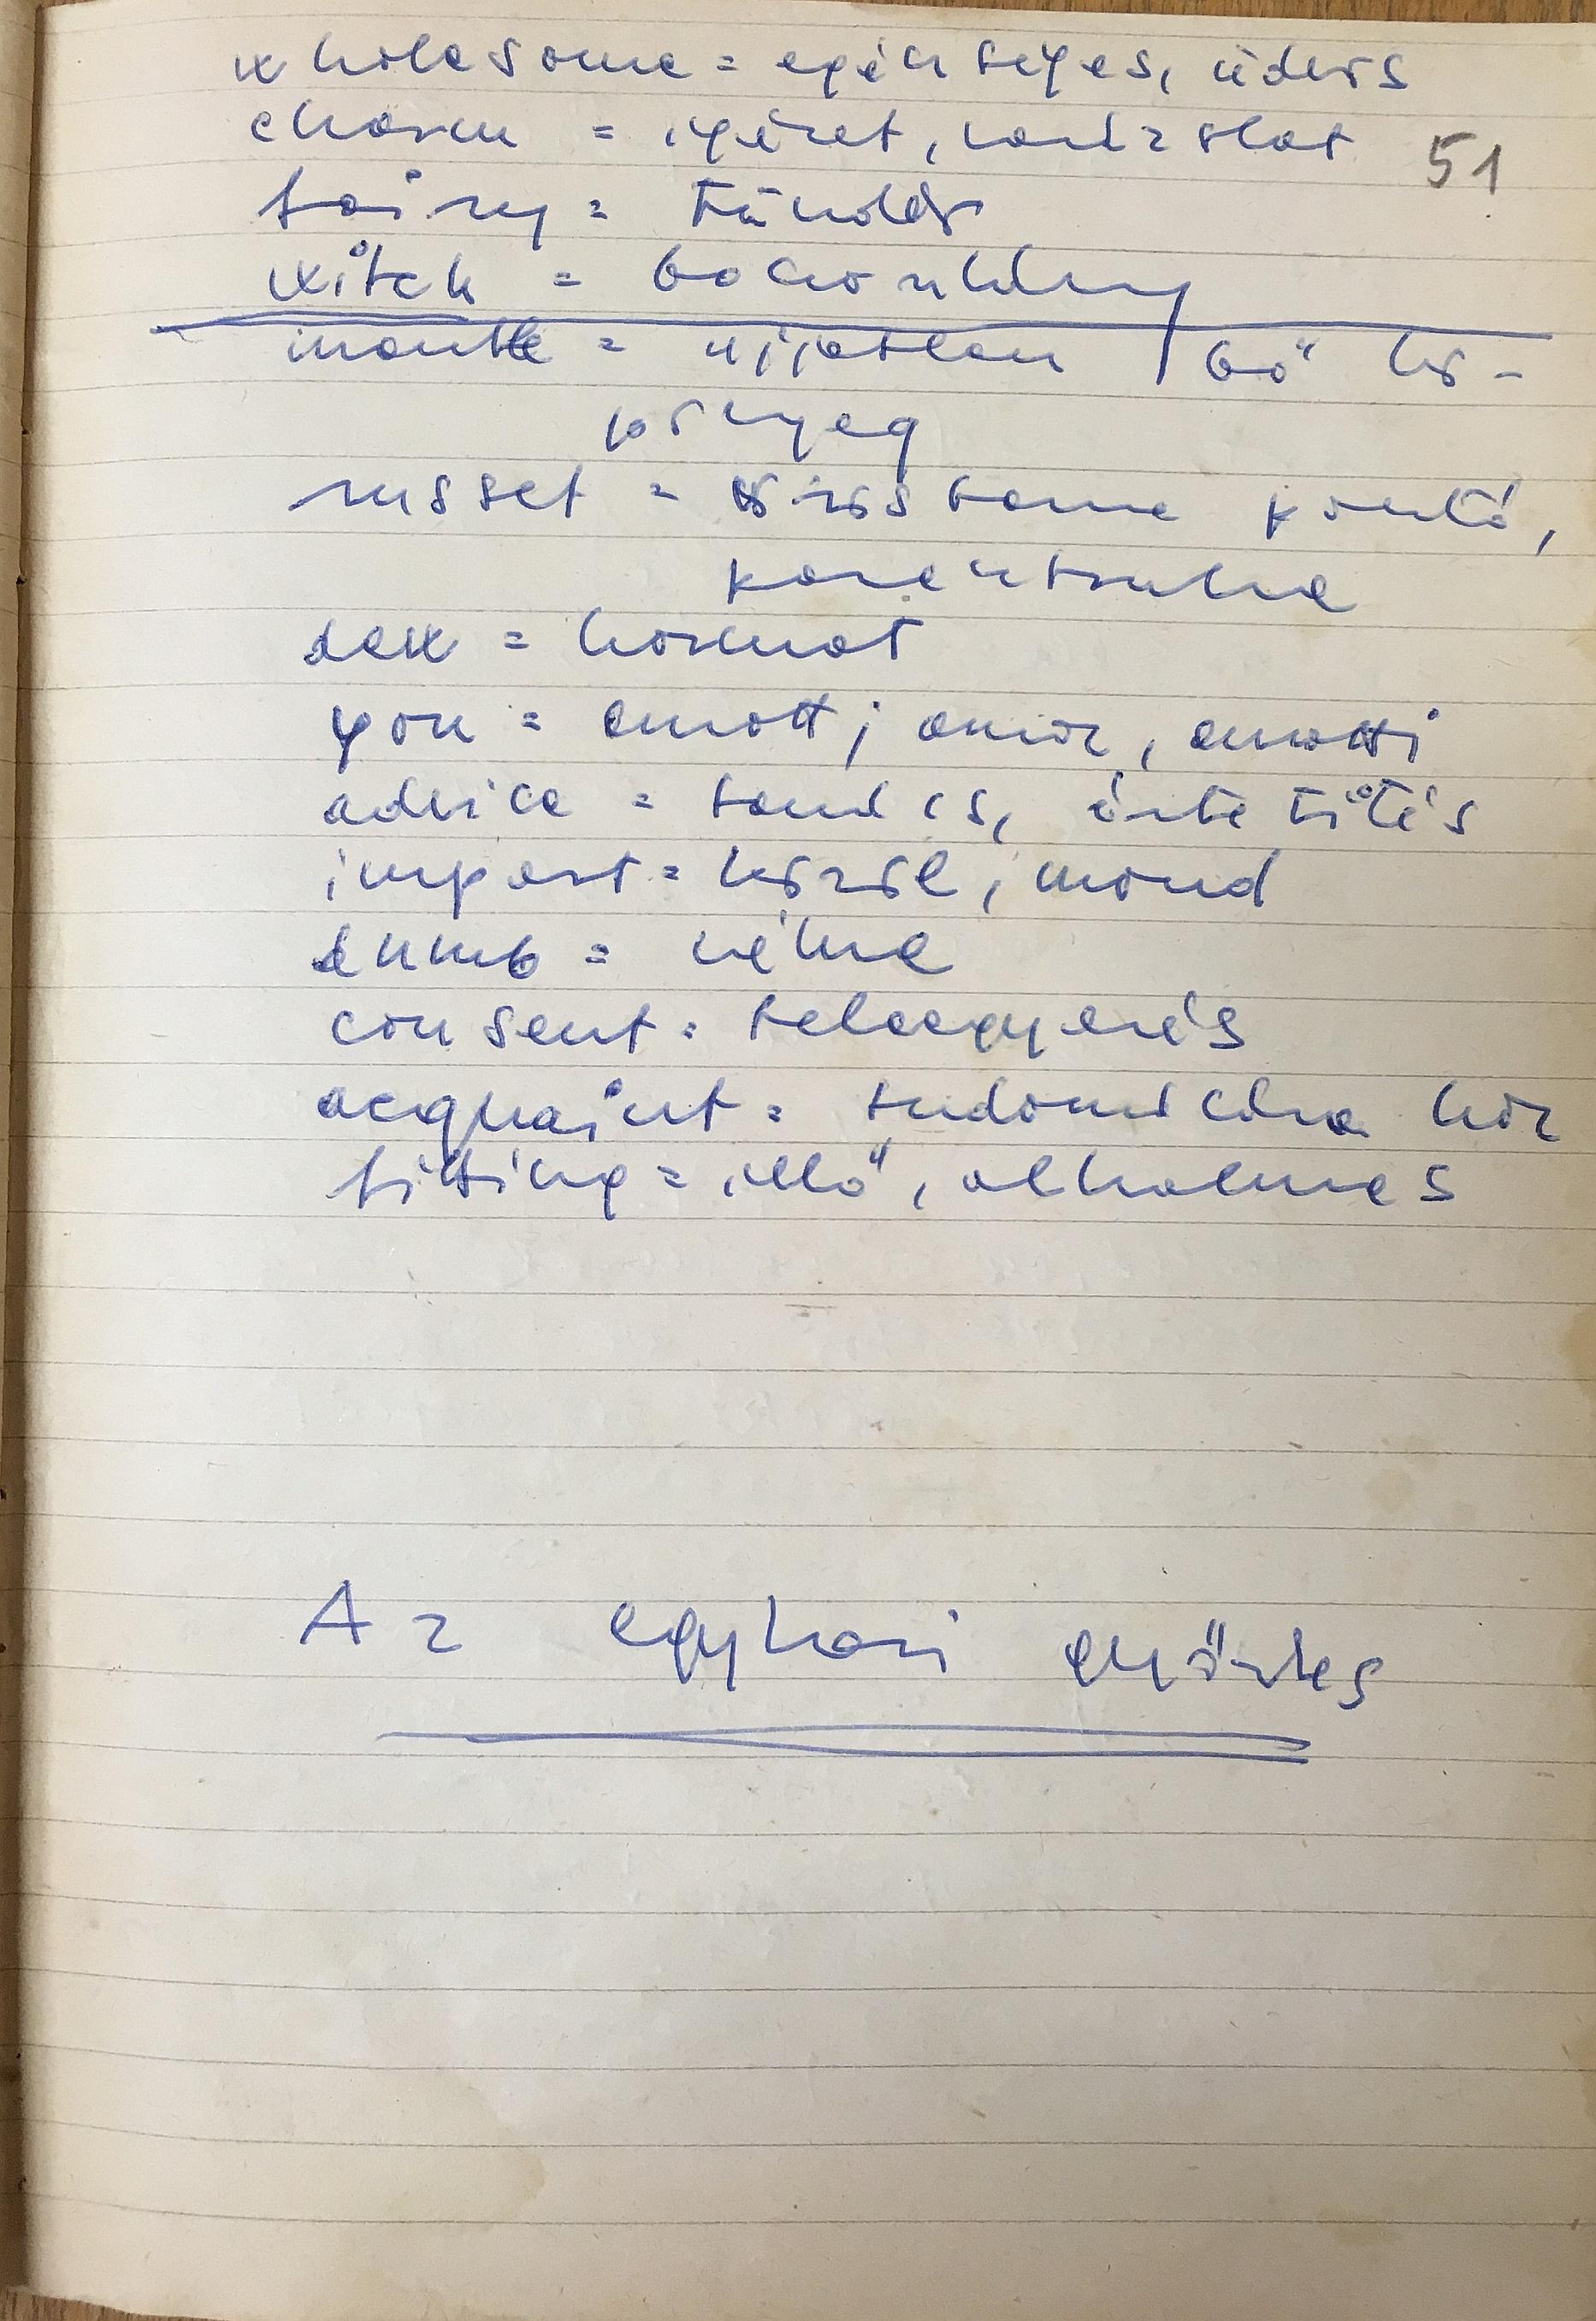 wholesome = egészséges, üdvös
charm = igézet, varázslat
51
fairy = tündér
witch = boszorkány
mantle = ujjatlan bő kö-
pönyeg
russet = vörösbarna posztó,
parasztruha
dew = harmat
yon = amott; amaz, amotti
advice = tanács, értesítés
impart = közöl, mond
dumb = néma
consent = beleegyezés
acquaint = tudomására hoz
fitting = illő, alkalmas
Az egykori